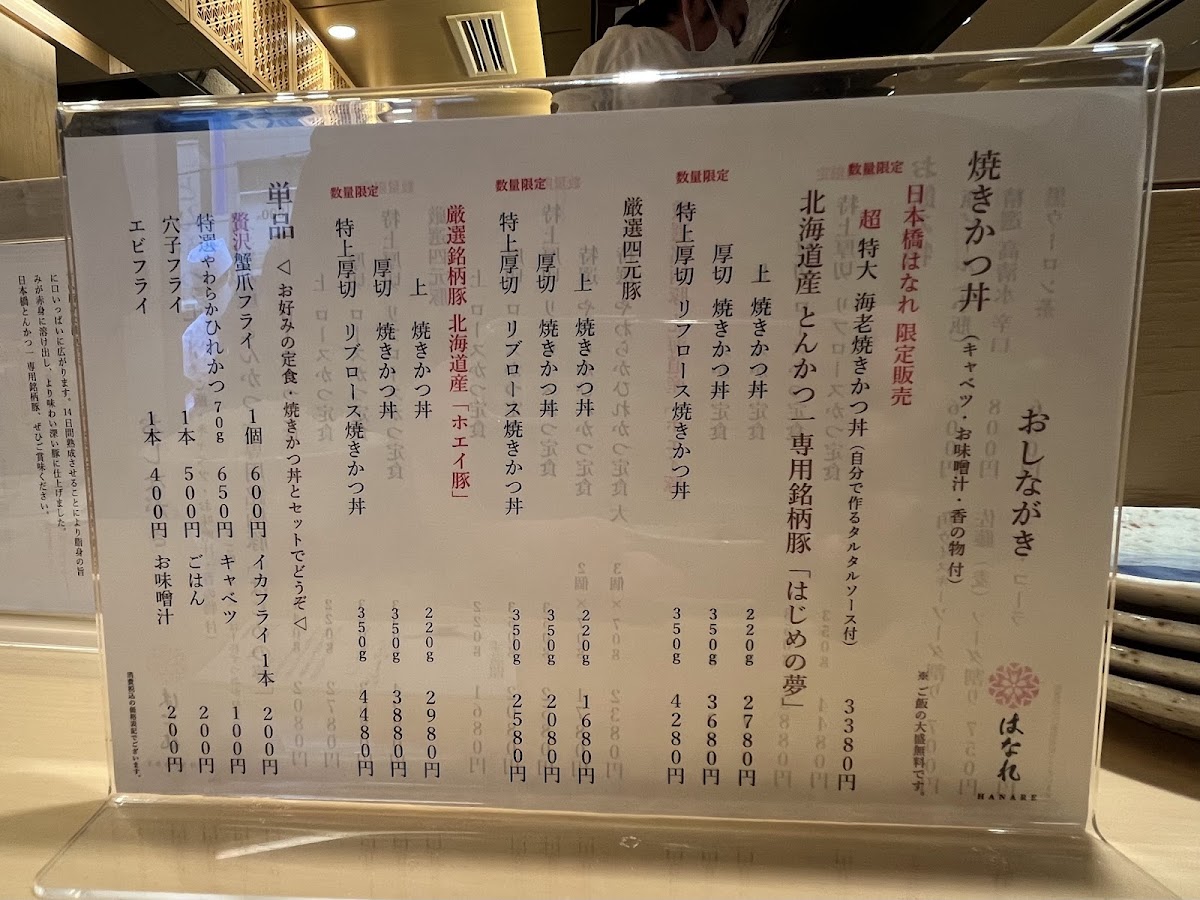 おしながき
はなれ
HANARE
焼きかつ丼 (キャベツ・お味噌汁・香の物付)
※ご飯の大盛無料です。
日本橋はなれ 限定販売
数量限定
超 特大 海老焼きかつ丼 (自分で作るタルタルソース付) 3380円
北海道産 とんかつ一 専用銘柄豚「はじめの夢」
上 焼きかつ丼 220g 2780円
厚切 焼きかつ丼 350g 3680円
数量限定
特上厚切 リブロース焼きかつ丼 350g 4280円
厳選四元豚
上 焼きかつ丼 220g 1680円
厚切 焼きかつ丼 350g 2080円
数量限定
特上厚切 リブロース焼きかつ丼 350g 2580円
厳選銘柄豚 北海道産「ホエイ豚」
上 焼きかつ丼 220g 2980円
厚切 焼きかつ丼 350g 3880円
数量限定
特上厚切 リブロース焼きかつ丼 350g 4480円
単品 ◁ お好みの定食・焼きかつ丼とセットでどうぞ ◁
贅沢蟹爪フライ 1個 600円 イカフライ 1本 200円
特選やわらかひれかつ 70g 650円 キャベツ 100円
穴子フライ 1本 500円 ごはん 200円
エビフライ 1本 400円 お味噌汁 200円
消費税込の価格表記でございます。
に口いっぱいに広がります。14日間熟成させることにより脂身の旨
みが赤身に溶け出し、より味わい深い豚に仕上げました。
日本橋とんかつ一 専用銘柄豚、ぜひご賞味ください。